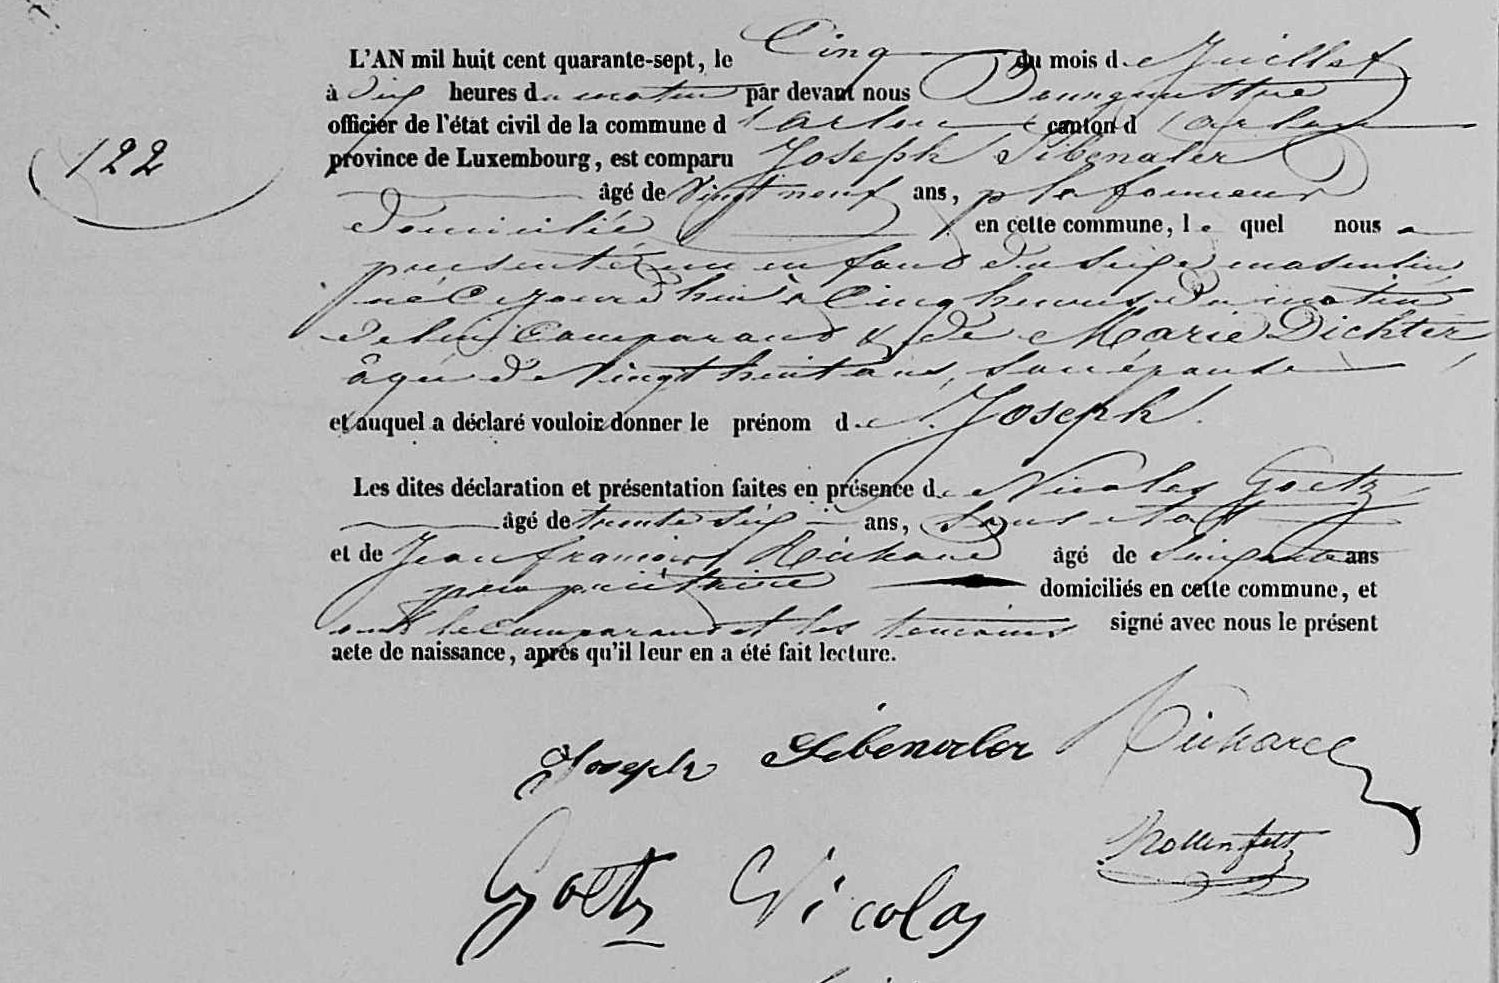 L'AN mil huit cent quarante-sept, le Cinq du mois de Juillet
à dix heures du matin par devant nous Bourgmestre
officier de l'état civil de la commune d'arlon canton d'arlon
122
province de Luxembourg, est comparu Joseph Sibenaler
âgé de Vingt neuf ans, plafonneur
domicilié en cette commune, lequel nous a
présenté un enfant du sexe masculin,
né cejourd'hui à Cinq heures du matin
de lui Comparant & de Marie Dichter,
âgée de Vingt huit ans, son épouse
et auquel a déclaré vouloir donner le prénom de Joseph.
Les dites déclaration et présentation faites en présence de Nicolas Goetz
âgé de trente six ans,
et de Jean françois Richard âgé de Cinquante ans
propriétaire domiciliés en cette commune, et
ont le Comparant et les témoins signé avec nous le présent
acte de naissance, après qu'il leur en a été fait lecture.
Joseph Sibenaler Richard
Goetz Nicolas